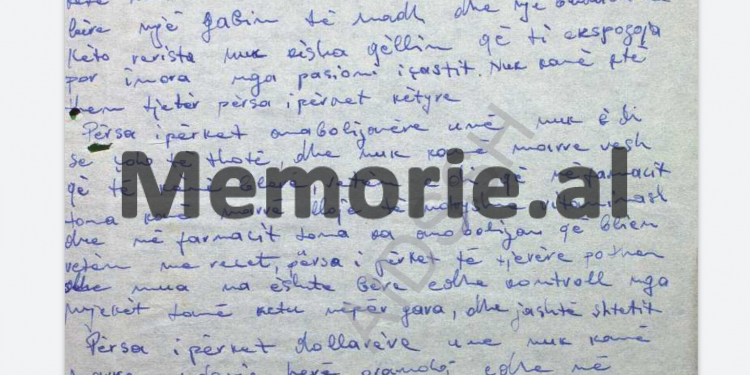 bëre një gabim të madh dhe një
Këto revista nuk kisha qëllim që ti ekspozoja
por i mora nga pasioni i çastit. Nuk kamë ktë
them tjetër përsa i përket këtyre
Përsa i përket anabolizanëve unë nuk ë di
se çoho të thotë, dhe nuk kamë marre vesh
që të kenë blere, vetëm e di që
tona kanë marrë llojë të ndryshme vitaminash
dhe në farmacit tona ka anabolizan që blien
vetëm me recet, përsa i përket të tjerëve po
dhe mua na është bëre edhe kontroll nga
mjekët tanë ketu nëpër gara, dhe jashtë shtetit
Përsa i përket dollarëve une nuk kamë
herë edhe në
Memorie.al